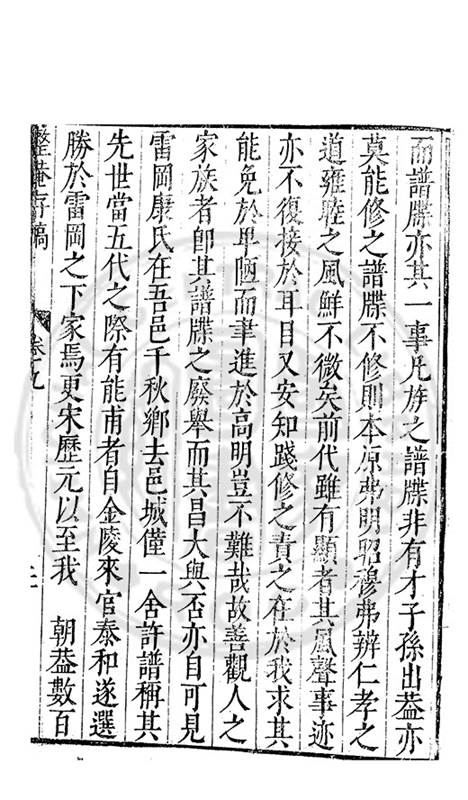 而譜牒亦其一事凡族之譜牒非有才子孫出葢亦
莫能修之譜牒不修則本原弗明昭穆弗辨仁孝之
道雍睦之風鮮不微矣前代雖有顯者其風聲事迹
亦不復接於耳目又安知踐修之責之在於我求其
能免於卑陋而聿進於高明豈不難哉故善觀人之
家族者卽其譜牒之廢舉而其昌大與否亦自可見
雷岡康氏在吾邑千秋鄉去邑城僅一舍許譜稱其
先世當五代之際有能甫者自金陵來官泰和遂選
勝於雷岡之下家焉更宋歷元以至我　朝葢數百
整菴存稿　卷九